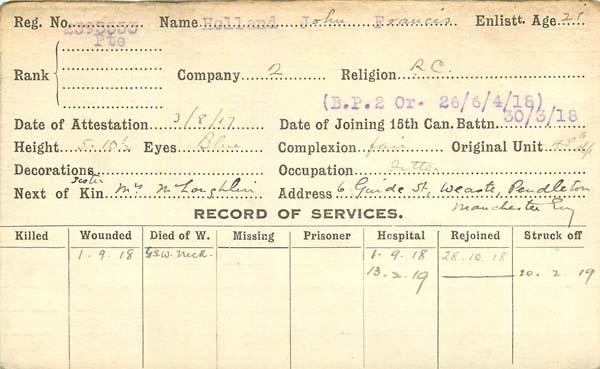 Reg. No. Name Holland John Francis Enlistt. Age 21
Pte
Rank Company 2 Religion R.C.
(B.P.2 Or. 26/6/4/18)
Date of Attestation 3/8/17 Date of Joining 15th Can. Battn. 30/3/18
Height 5-10½ Eyes Blue Complexion fair Original Unit 48th
Decorations Occupation Fitter
sister
Next of Kin Mrs McLoughlin Address 6 Guide St, Weaste, Pendleton
Manchester Eng
RECORD OF SERVICES.
Killed Wounded Died of W. Missing Prisoner Hospital Rejoined Struck off
1.9.18 G.S.W. Neck. 1.9.18 28.10.18
13.2.19 20.2.19